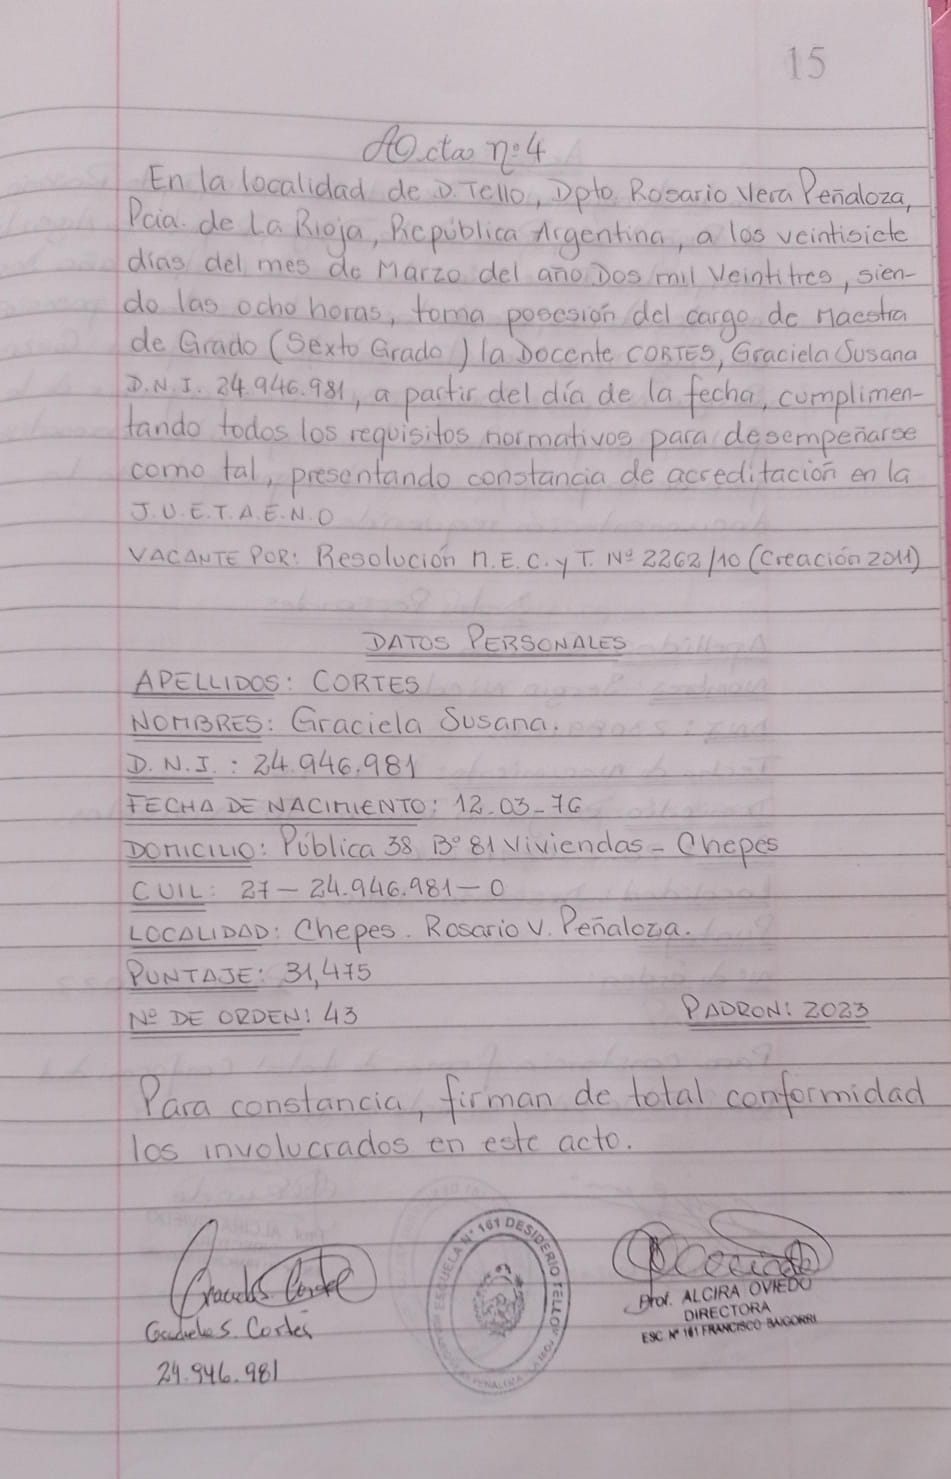 15
Acta nº4
En la localidad de D. Tello, Dpto. Rosario Vera Peñaloza,
Pcia. de La Rioja, República Argentina, a los veintisiete
días del mes de Marzo del año Dos mil Veintitres, sien-
do las ocho horas, toma posesión del cargo de Maestra
de Grado (Sexto Grado) la Docente CORTES, Graciela Susana
D.N.I. 24.946.981, a partir del día de la fecha, cumplimen-
tando todos los requisitos normativos para desempeñarse
como tal, presentando constancia de acreditación en la
J.U.E.T.A.E.N.O
VACANTE POR: Resolución M.E.C. y T. Nº 2262/10 (Creación 2011)
DATOS PERSONALES
APELLIDOS: CORTES
NOMBRES: Graciela Susana.
D.N.I.: 24.946.981
FECHA DE NACIMIENTO: 12-03-76
DOMICILIO: Pública 38 Bº 81 Viviendas - Chepes
CUIL: 27-24.946.981-0
LOCALIDAD: Chepes. Rosario V. Peñaloza.
PUNTAJE: 31,475
Nº DE ORDEN: 43 PADRON: 2023
Para constancia, firman de total conformidad
los involucrados en este acto.
Graciela S. Cortés
24.946.981
ESCUELA Nº 161 DESIDERIO TELLO
Prof. ALCIRA OVIEDO
DIRECTORA
ESC. Nº 161 FRANCISCO BAIGORRI